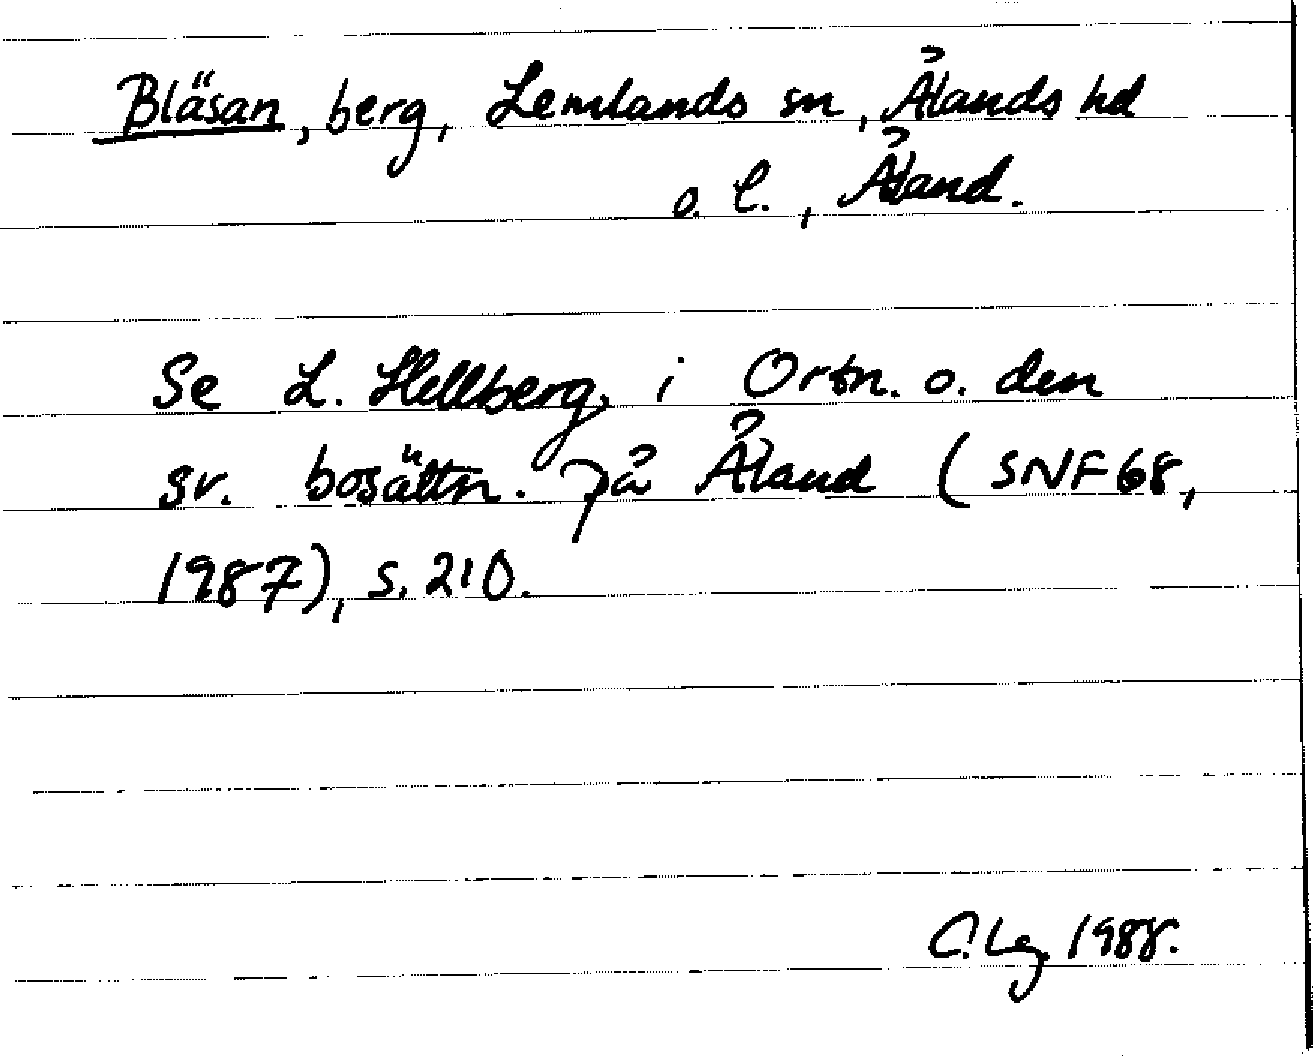 Bläsan, berg, Lemlands sn, Ålands hd
o. l., Åland.
Se L. Hellberg, i Ortn. o. den
sv. bosättn. på Åland (SNF 68,
1987), s. 210.
C. Lg. 1988.